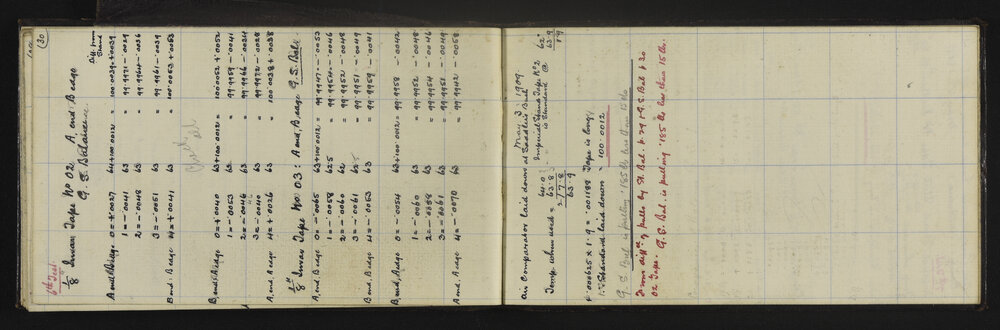 (30
6th Test.
1/8" Invar Tape No 02, A end B edge
G. S. Balance
Diff. from Stand
A end A edge 0 = +·0027 64 + 100·0012 = 100·0039 = +·0039
1 = -·0041 63 = 99·9971 = -·0029
2 = -·0048 63 = 99·9964 = -·0036
3 = -·0051 63 = 99·9961 = -·0039
B end: B edge 4 = +·0041 63 = 100·0053 = +·0053
B end, B edge 0 = +·0040 63 + 100·0012 = 100·0052 = +·0052
1 = -·0053 63 = 99·9959 = -·0041
2 = -·0046 63 = 99·9966 = -·0034
3 = -·0040 63 = 99·9972 = -·0028
A, end, A edge 4 = +·0026 63 = 100·0038 = +·0038
1/8" Invar Tape No 03: A end, B, edge G. S. Bal.
A, end, B edge 0 = -·0065 63 + 100·0012 = 99·9947 = -·0053
1 = -·0058 62·5 = 99·9954 = -·0046
2 = -·0060 62 = 99·9952 = -·0048
3 = -·0061 = 99·9951 = -·0049
B end, B edge 4 = -·0053 63 = 99·9959 = -·0041
B end, A edge 0 = -·0054 63 + 100·0012 = 99·9958 = -·0042
1 = -·0060 63 = 99·9952 = -·0048
2 = -·0058 63 = 99·9954 = -·0046
3 = -·0061 63 = 99·9951 = -·0049
A end A edge 4 = -·0070 63 = 99·9942 = -·0058
May 3, 1909.
on Comparator laid down at Saddler's Bal
Imperial Stand Tape No 2 is Standard @ 62°
63·9
1·9
Temp. when used = 64·0
63·8
2)7·8
63·9
+·000625 x 1·9 = ·001188 Tape is long
Standard laid down = 100·0012
G. S. Bal is pulling ·185 lb less than 15 lb
From diff. of pulls by St. Bal. p. 29 & G. S. Bal p 30
02 Tape. G. S. Bal. is pulling ·185 lb less than 15 lb.